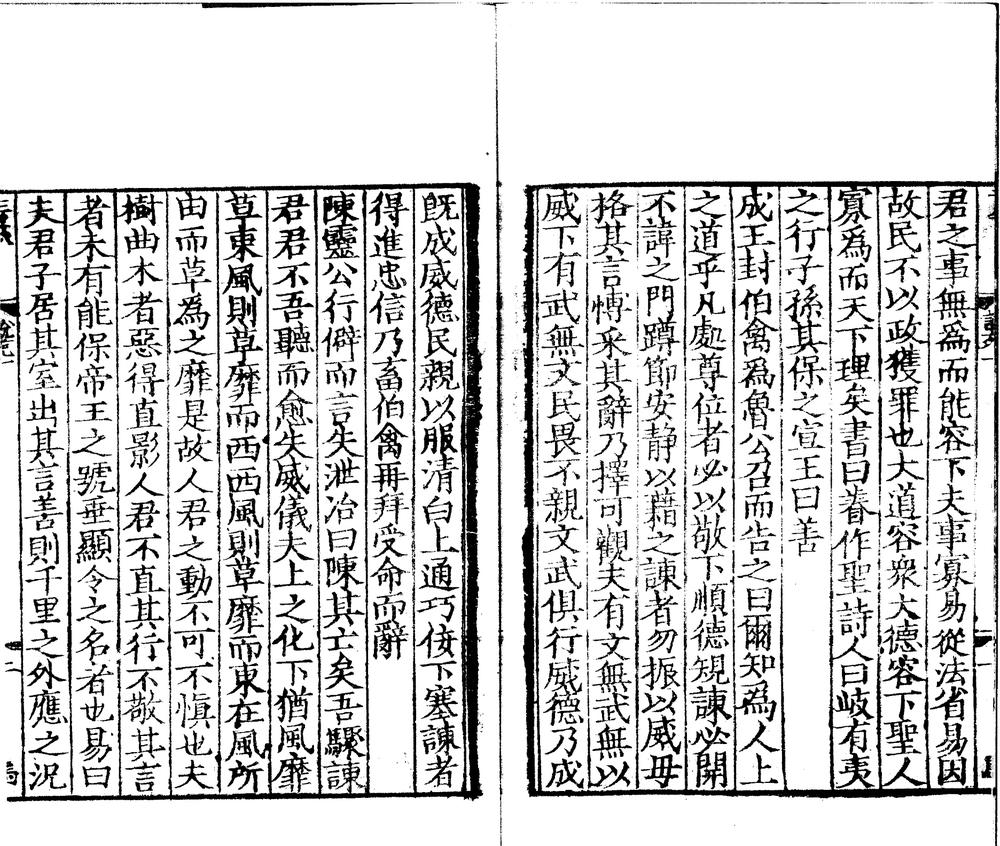 君之事無爲而能容下夫事寡易從法省易因
故民不以政獲罪也大道容衆大德容下聖人
寡爲而天下理矣書曰睿作聖詩人曰岐有夷
之行子孫其保之宣王曰善
成王封伯禽爲魯公召而告之曰爾知爲人上
之道乎凡處尊位者必以敬下順德規諫必開
不諱之門蹲節安静以藉之諫者勿振以威毋
格其言愽采其辭乃擇可觀夫有文無武無以
威下有武無文民畏不親文武俱行威德乃成
旣成威德民親以服清白上通巧佞下塞諫者
得進忠信乃畜伯禽再拜受命而辭
陳靈公行僻而言失泄冶曰陳其亡矣吾驟諫
君君不吾聽而愈失威儀夫上之化下猶風靡
草東風則草靡而西西風則草靡而東在風所
由而草爲之靡是故人君之動不可不慎也夫
樹曲木者惡得直影人君不直其行不敬其言
者未有能保帝王之號垂顯令之名者也易曰
夫君子居其室出其言善則千里之外應之況